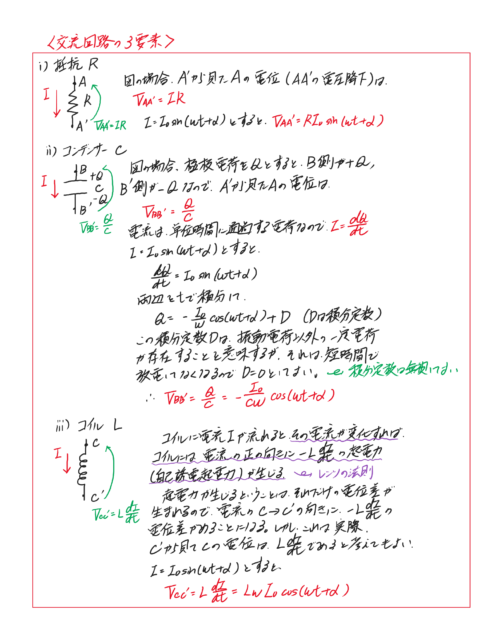 <交流回路の3要素>
i) 抵抗 R
A
I
R
A'
V_AA'=IR
図の場合、A'から見たAの電位(AA'の電圧降下)は、
V_AA' = IR
I = I₀sin(ωt+α)とすると、V_AA' = RI₀ sin(ωt+α)
ii) コンデンサー C
B
+Q
I
C
-Q
B'
V_BB' = Q/C
図の場合、極板電荷をQとすると、B側が+Q,
B'側が-Qなので、A'から見たAの電位は、
V_BB' = Q/C
電流は、単位時間に通過する電荷なので I = dQ/dt
I = I₀sin(ωt+α)とすると、
dQ/dt = I₀ sin(ωt+α)
両辺をtで積分して、
Q = - I₀/ω cos(ωt+α) + D (Dは積分定数)
この積分定数Dは、振動電荷以外の一定電荷
が存在することを意味するが、それは、短時間で
放電してなくなるので D=0としてよい。
積分定数は無視してよい
∴ V_BB' = Q/C = - I₀/Cω cos(ωt+α)
iii) コイル L
C
I
C'
V_CC' = L dI/dt
コイルに電流Iが流れると、その電流が変化すれば、
コイルには、電流の正の向きに -L dI/dt の起電力
(自己誘電起電力)が生じる
レンツの法則
起電力が生じるということは、それだけの電位差が
生まれるので、電流のC→C'の向きに、-L dI/dt の
電位差があることになる。しかし、これは実際、
C'から見てCの電位は、L dI/dt であると考えてもよい。
I = I₀sin(ωt+α)とすると、
V_CC' = L dI/dt = LωI₀ cos(ωt+α)